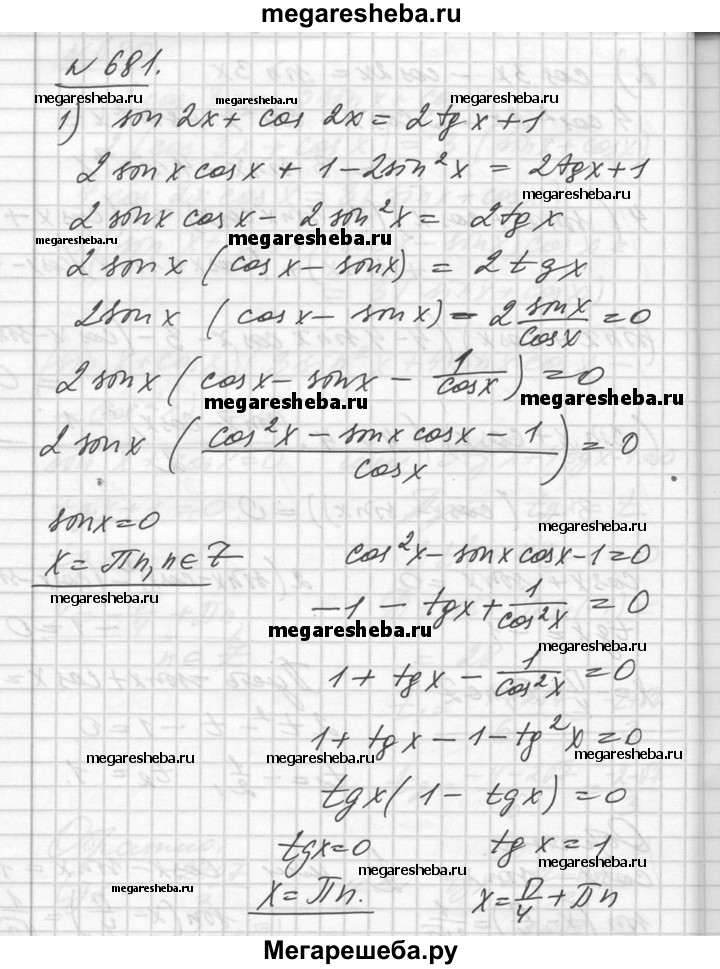 megaresheba.ru
№ 681.
megaresheba.ru megaresheba.ru megaresheba.ru
1) sin 2x + cos 2x = 2tg x + 1
2 sin x cos x + 1 - 2sin²x = 2tgx + 1
megaresheba.ru
2 sin x cos x - 2 sin²x = 2tgx
megaresheba.ru megaresheba.ru
2 sin x (cos x - sin x) = 2tgx
2 sin x (cos x - sin x) - 2 sin x / cos x = 0
2 sin x (cos x - sin x - 1 / cos x) = 0
megaresheba.ru megaresheba.ru
2 sin x ((cos²x - sin x cos x - 1) / cos x) = 0
sin x = 0
megaresheba.ru
x = Пn, n ∈ Z cos²x - sin x cos x - 1 = 0
megaresheba.ru
-1 - tgx + 1 / cos²x = 0
megaresheba.ru
megaresheba.ru
1 + tgx - 1 / cos²x = 0
1 + tgx - 1 - tg²x = 0
megaresheba.ru megaresheba.ru megaresheba.ru
tgx (1 - tgx) = 0
tgx = 0 tg x = 1
megaresheba.ru
megaresheba.ru
x = Пn. x = П/4 + Пn
megaresheba.ru
Мегарешеба.ру